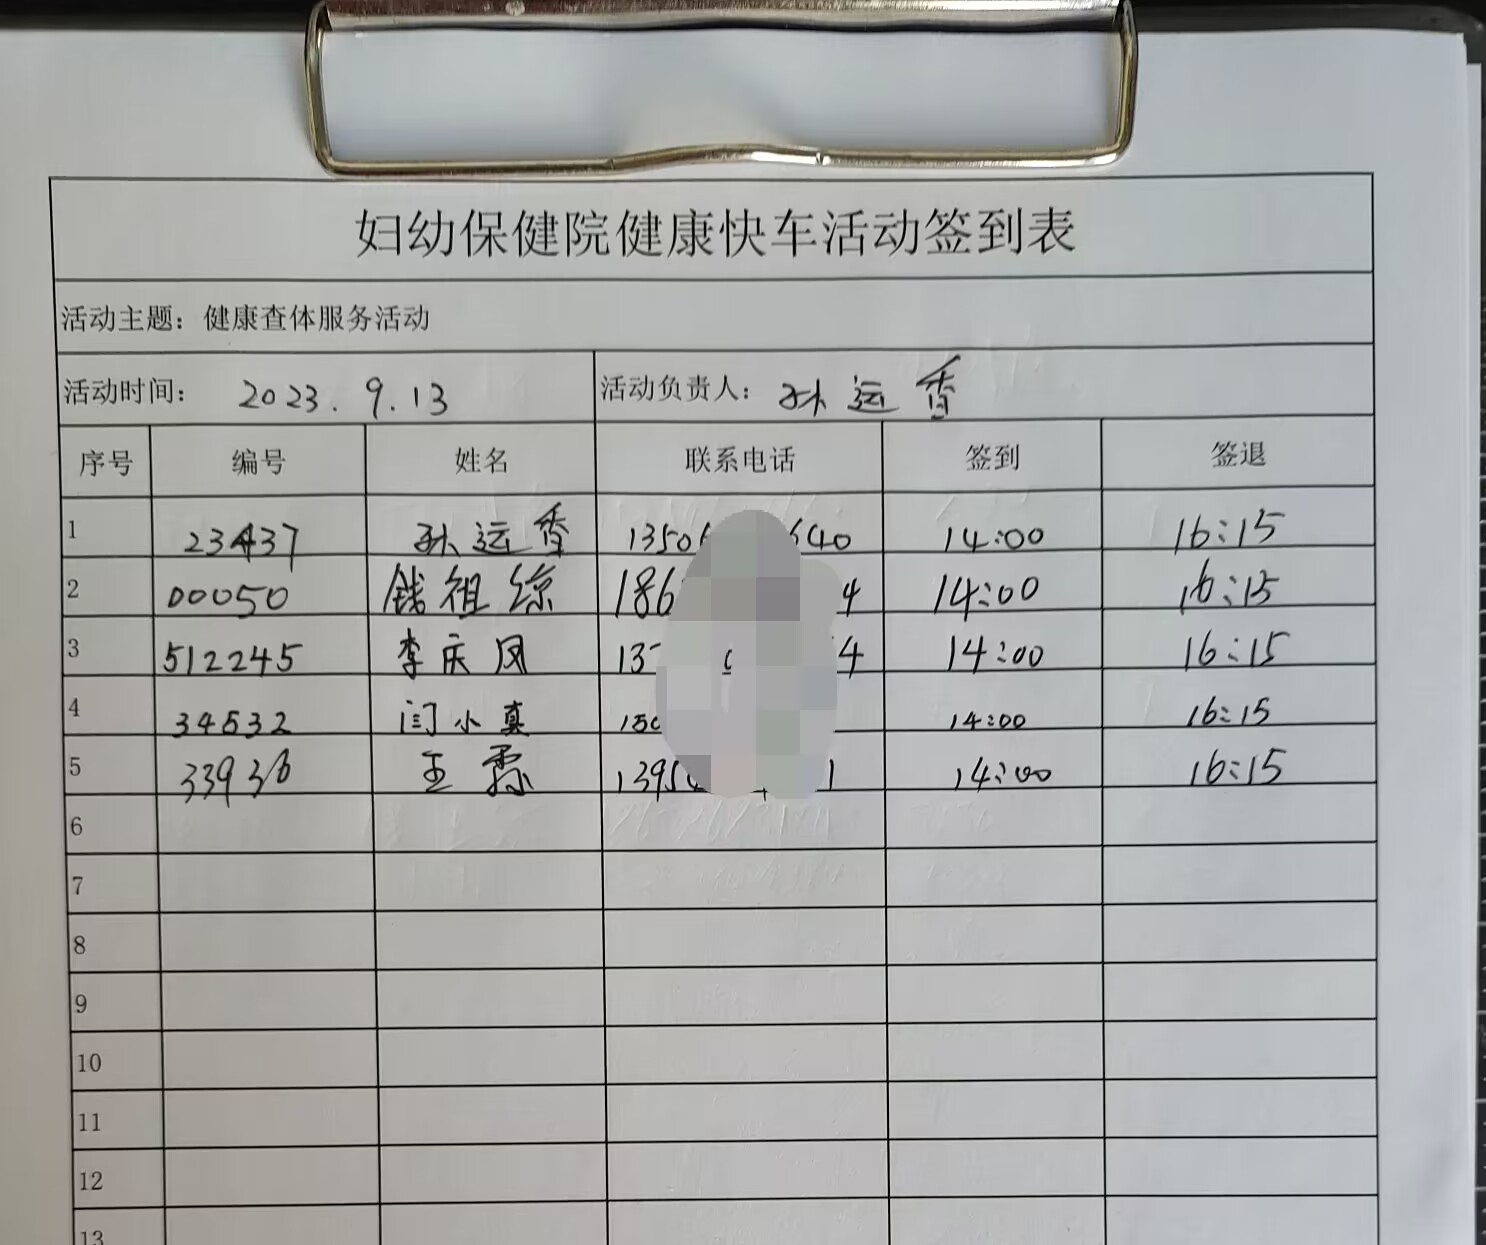 妇幼保健院健康快车活动签到表
活动主题：健康查体服务活动
活动时间： 2023.9.13 活动负责人： 孙运香
序号 编号 姓名 联系电话 签到 签退
1 23437 孙运香 1350 640 14:00 16:15
2 00050 钱祖综 186 4 14:00 16:15
3 512245 李庆凤 137 4 14:00 16:15
4 34532 闫小真 150 14:00 16:15
5 33936 王霖 1395 1 14:00 16:15
6
7
8
9
10
11
12
13